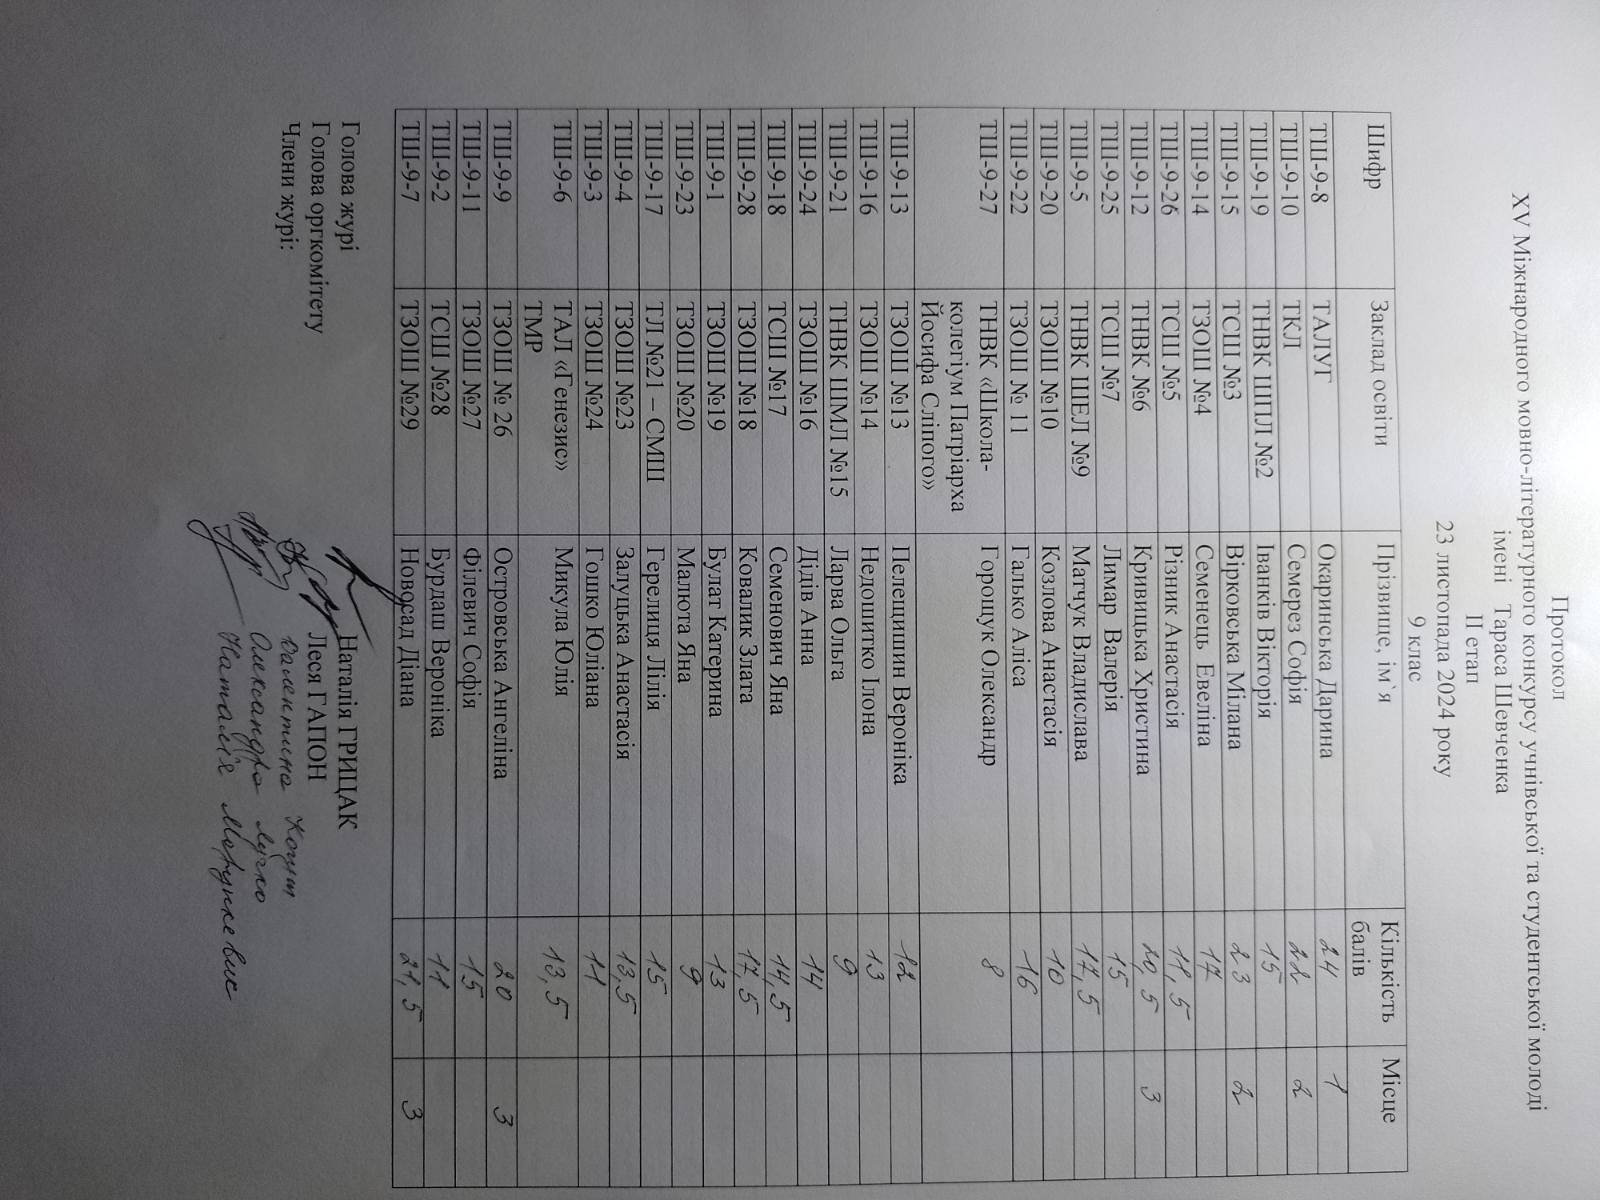 Протокол
XV Міжнародного мовно-літературного конкурсу учнівської та студентської молоді
імені Тараса Шевченка
ІІ етап
23 листопада 2024 року
9 клас
Шифр Заклад освіти Прізвище, ім`я Кількість балів Місце
ТШ-9-8 ТАЛУГ Окаринська Дарина 24 1
ТШ-9-10 ТКЛ Семерез Софія 22 2
ТШ-9-19 ТНВК ШПЛ №2 Іванків Вікторія 15
ТШ-9-15 ТСШ №3 Вірковська Мілана 23 2
ТШ-9-14 ТЗОШ №4 Семенець Евеліна 17
ТШ-9-26 ТСШ №5 Різник Анастасія 11,5
ТШ-9-12 ТНВК №6 Кривицька Христина 20,5 3
ТШ-9-25 ТСШ №7 Лимар Валерія 15
ТШ-9-5 ТНВК ШЕЛ №9 Матчук Владислава 17,5
ТШ-9-20 ТЗОШ №10 Козлова Анастасія 10
ТШ-9-22 ТЗОШ № 11 Галько Аліса 16
ТШ-9-27 ТНВК «Школа-
колегіум Патріарха
Йосифа Сліпого» Горощук Олександр 8
ТШ-9-13 ТЗОШ №13 Пелещишин Вероніка 12
ТШ-9-16 ТЗОШ №14 Недошитко Ілона 13
ТШ-9-21 ТНВК ШМЛ №15 Ларва Ольга 9
ТШ-9-24 ТЗОШ №16 Дідів Анна 14
ТШ-9-18 ТСШ №17 Семенович Яна 14,5
ТШ-9-28 ТЗОШ №18 Ковалик Злата 17,5
ТШ-9-1 ТЗОШ №19 Булат Катерина 13
ТШ-9-23 ТЗОШ №20 Малюта Яна 9
ТШ-9-17 ТЛ №21 – СМШ Герелиця Лілія 15
ТШ-9-4 ТЗОШ №23 Залуцька Анастасія 13,5
ТШ-9-3 ТЗОШ №24 Гошко Юліана 11
ТШ-9-6 ТАЛ «Генезис»
ТМР Микула Юлія 13,5
ТШ-9-9 ТЗОШ № 26 Островська Ангеліна 20 3
ТШ-9-11 ТЗОШ №27 Філевич Софія 15
ТШ-9-2 ТСШ №28 Бурдаш Вероніка 11
ТШ-9-7 ТЗОШ №29 Новосад Діана 21,5 3
Голова журі Наталія ГРИЦАК
Голова оргкомітету Леся ГАПОН
Члени журі: Валентина Коцит
Олександра Лучко
Наталія